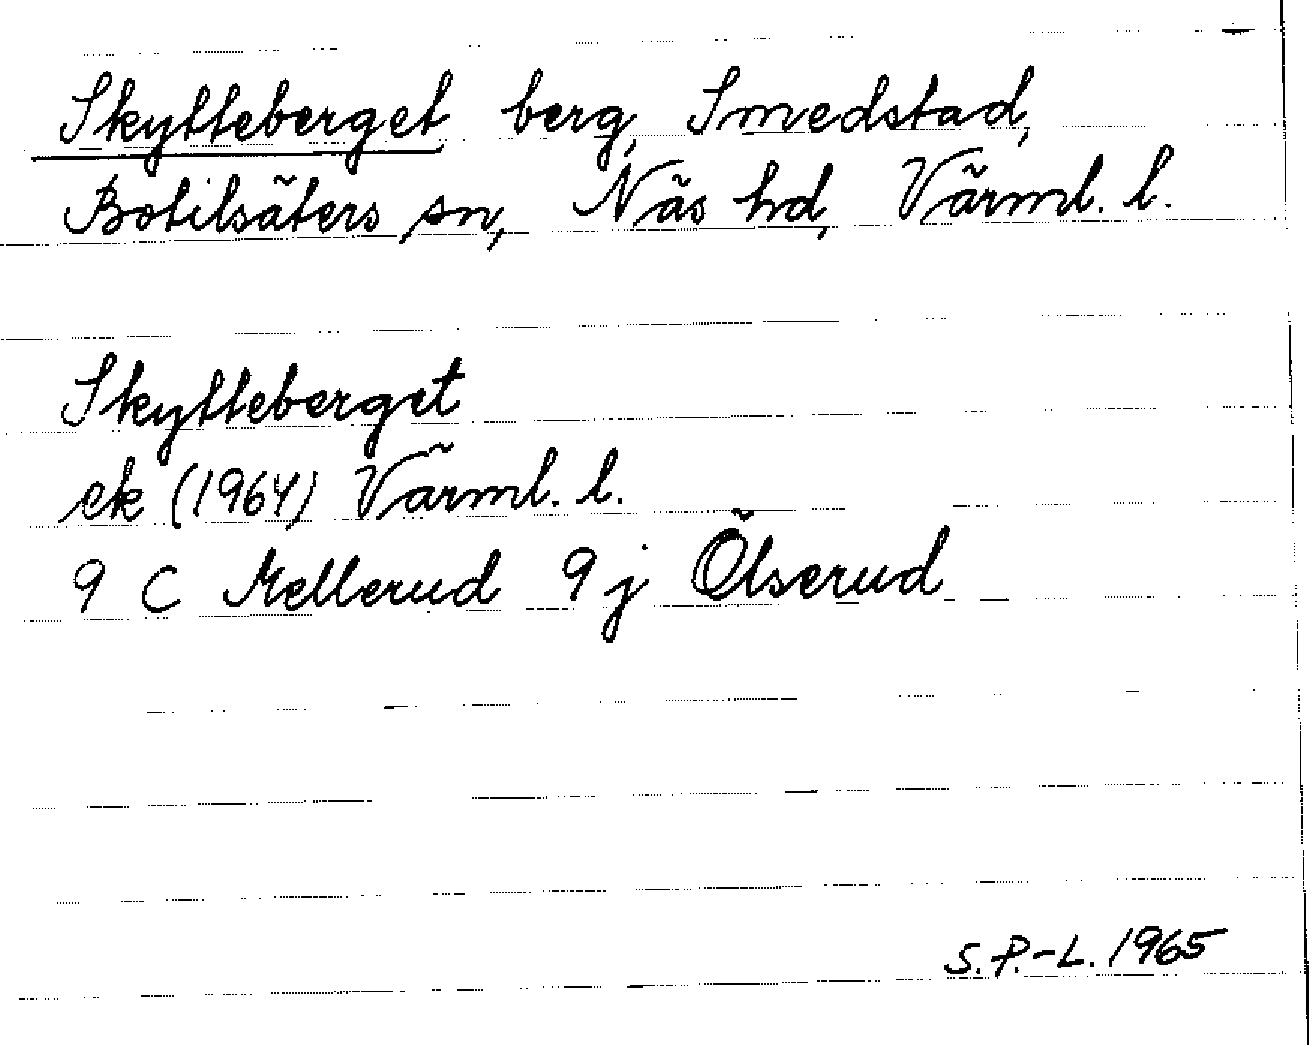 Skytteberget berg, Smedstad,
Botilsäters sn, Näs hd, Värml. l.
Skytteberget
ek (1964) Värml. l.
9 C Mellerud 9 j Ölserud
S. P.-L. 1965